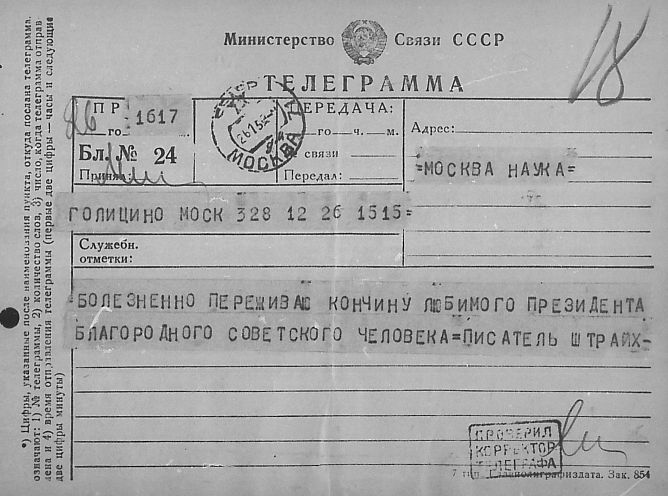 Министерство Связи СССР
ТЕЛЕГРАММА
18
ПР
1617
го
Бл. № 24
Принял
МОСКВА
ПЕРЕДАЧА:
го ч. м.
связи
Передал:
Адрес:
=МОСКВА НАУКА=
ГОЛИЦИНО МОСК 328 12 26 1515=
Служебн.
отметки:
БОЛЕЗНЕННО ПЕРЕЖИВАЮ КОНЧИНУ ЛЮБИМОГО ПРЕЗИДЕНТА
БЛАГОРОДНОГО СОВЕТСКОГО ЧЕЛОВЕКА=ПИСАТЕЛЬ ШТРАЙХ-
ПРОВЕРИЛ
КОРРЕКТОР
ТЕЛЕГРАФА
Зак. 854
*) Цифры, указанные после наименования пункта, откуда послана телеграмма,
означают: 1) № телеграммы, 2) количество слов, 3) число, когда телеграмма отправ-
лена и 4) время отправления телеграммы (первые две цифры — часы и следующие
две цифры минуты)